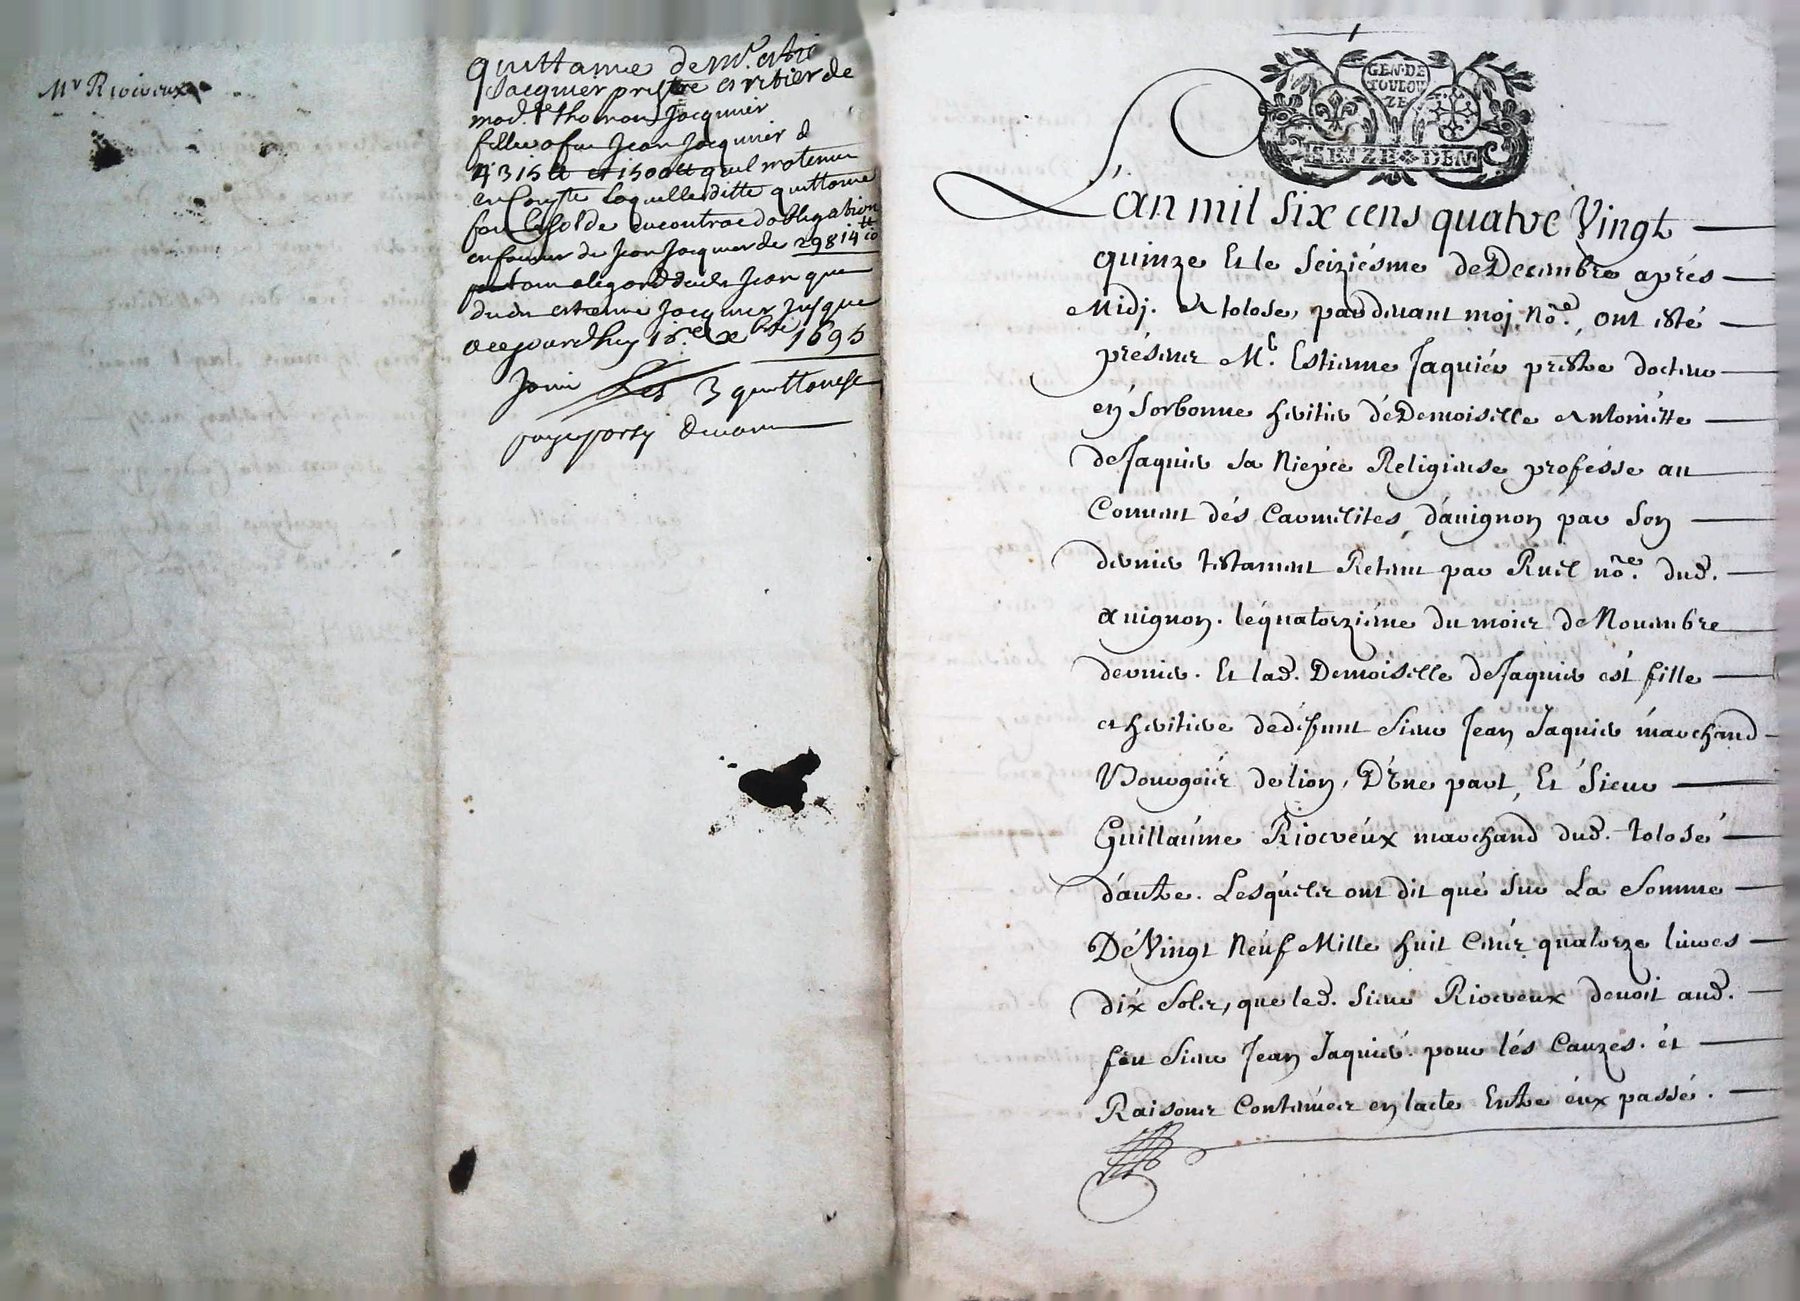 Mr Riocreux
quittance de Mr. estie
Jacquier prestre eritier de
mad.lle thoinon Jacquier
fille a feu Jean Jacquier d
4315 tt et 1500 tt quil ma tenu
en Conte laquelle ditte quittance
fait le solde du contrac dobligation
en faveur de Jean Jacquier de 29814 tt 10
tant alegard dudt Jean que
dudt estienne Jacquier jusque
a ce jourdhuy 16.e xbre 1695
Joint Les 3 quittances
GEN. DE
TOULOU
ZE
SEIZE DEN
L'an mil six cens quatre Vingt
quinze Et le Seiziésme de Decembre aprés
Midj. A tolose, pardevant moj No.re, ont esté
présens Me. Estienne Jaquiér prestre docteur
en Sorbonne heritier dé Demoiselle Antoinétte
de Jaquier sa Niépce Religieuse professe au
Couvent dés Carmelites d'auignon par Son
dernier testament Retenu par Ruel no.re dud.
auignon. le quatorziéme du mois de Nouembre
dernier. Et lad. Demoiselle de Jaquier est fille
et heritiere de défunt Sieur Jean Jaquier marchand
Bourgois de lion, D'Une part, Et Sieur
Guillaume Riocreux marchand dud. tolosé
d'autre. Lesquéls ont dit qué sur La Somme
Dé Vingt Neuf Mille huit Cens quatorze liures
dix Sols, que led. Sieur Riocreux deuoit aud.
feu Sieur Jean Jaquier. pour lés Cauzes. ét
Raisons Contenües en lacte Entre éux passé.